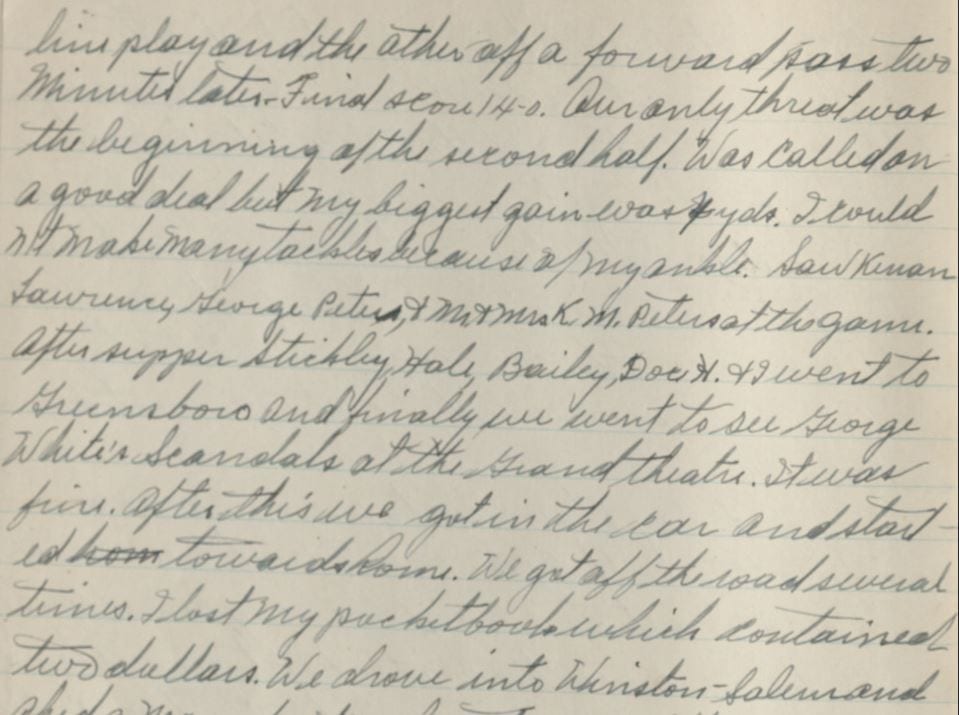 line play and the other off a forward pass two
Minutes later. Final score 14-0. Our only threat was
the beginning of the second half. Was called on
a good deal but my biggest gain was yds. I could
not make many tackles because of my ankle. Saw Kenan
Lawrence, George Peters, & Mr & Mrs K. M. Peters at the game.
After supper Stickley, Hale, Bailey, Doc H. & I went to
Greensboro and finally we went to see George
White's Scandals at the Grand theatre. It was
fine. After this we got in the car and start-
ed hom towards home. We got off the road several
times. I lost my pocketbook which contained
two dollars. We drove into Winston-Salem and